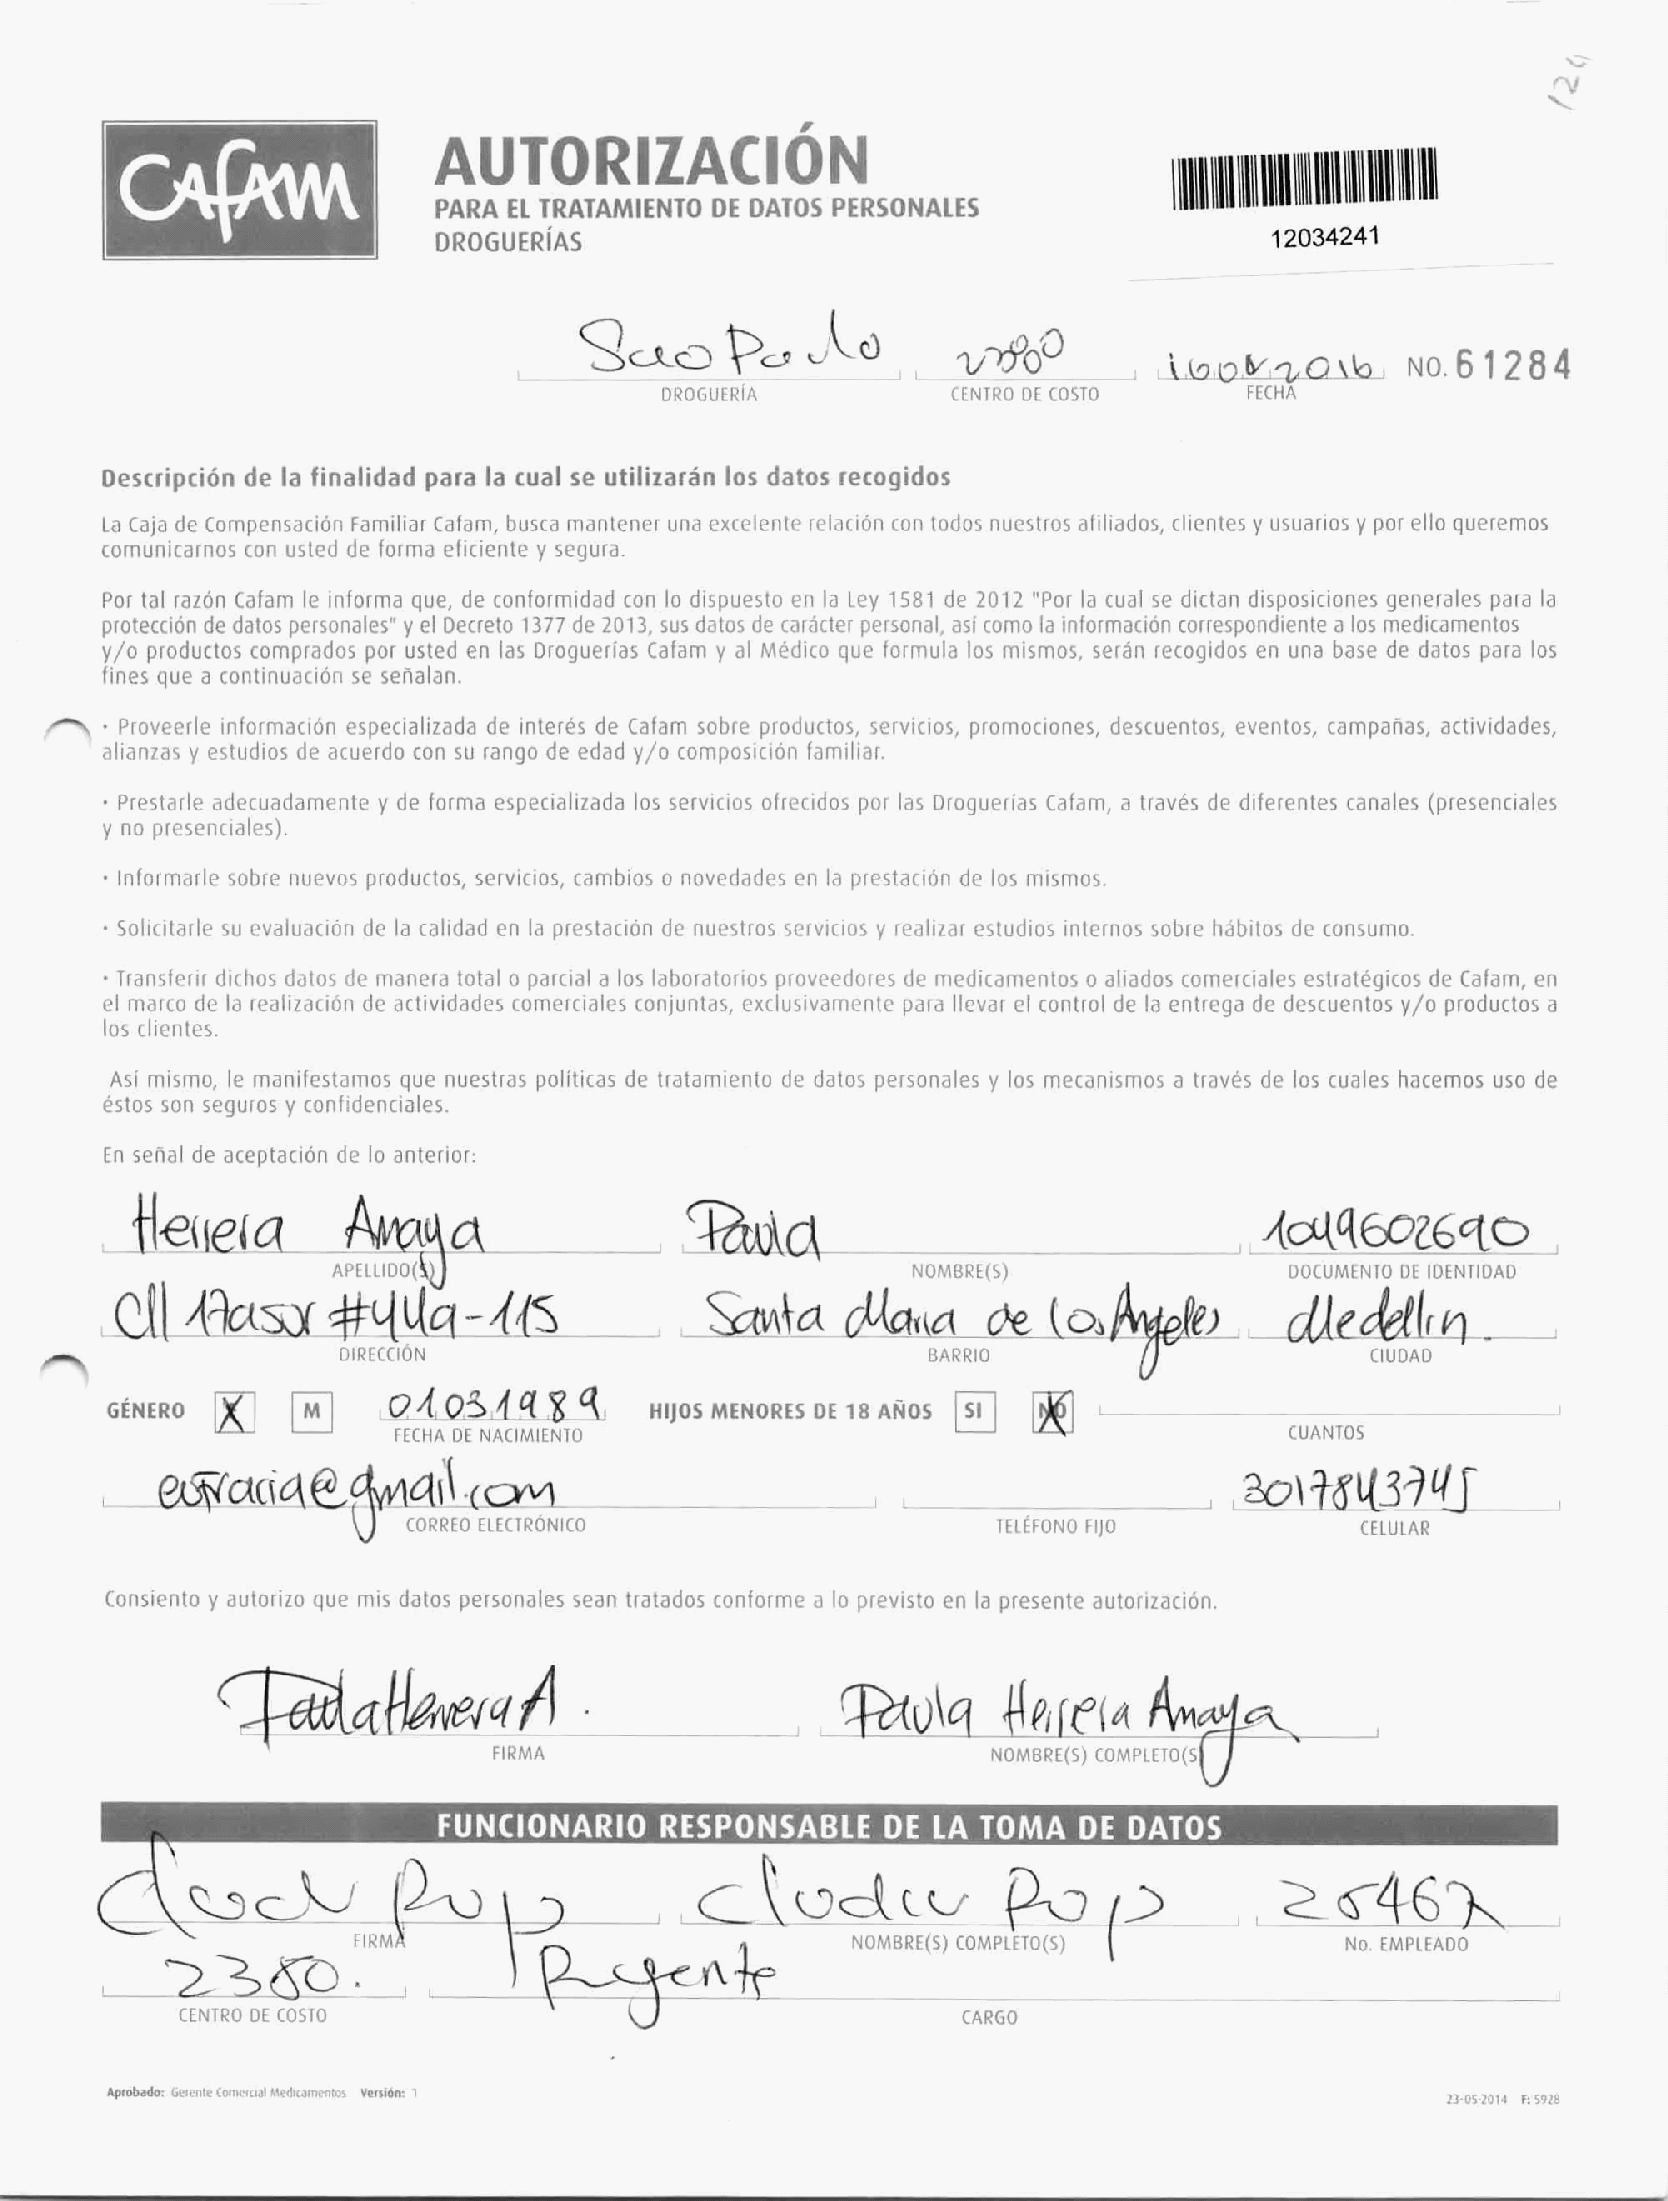 124
CAFAM
AUTORIZACIÓN
PARA EL TRATAMIENTO DE DATOS PERSONALES
DROGUERÍAS
12034241
Sao Paulo
DROGUERÍA
CENTRO DE COSTO
2016
FECHA
NO. 61284
Descripción de la finalidad para la cual se utilizarán los datos recogidos
La Caja de Compensación Familiar Cafam, busca mantener una excelente relación con todos nuestros afiliados, clientes y usuarios y por ello queremos
comunicarnos con usted de forma eficiente y segura.
Por tal razón Cafam le informa que, de conformidad con lo dispuesto en la Ley 1581 de 2012 "Por la cual se dictan disposiciones generales para la
protección de datos personales" y el Decreto 1377 de 2013, sus datos de carácter personal, así como la información correspondiente a los medicamentos
y/o productos comprados por usted en las Droguerías Cafam y al Médico que formula los mismos, serán recogidos en una base de datos para los
fines que a continuación se señalan.
· Proveerle información especializada de interés de Cafam sobre productos, servicios, promociones, descuentos, eventos, campañas, actividades,
alianzas y estudios de acuerdo con su rango de edad y/o composición familiar.
· Prestarle adecuadamente y de forma especializada los servicios ofrecidos por las Droguerías Cafam, a través de diferentes canales (presenciales
y no presenciales).
· Informarle sobre nuevos productos, servicios, cambios o novedades en la prestación de los mismos.
· Solicitarle su evaluación de la calidad en la prestación de nuestros servicios y realizar estudios internos sobre hábitos de consumo.
· Transferir dichos datos de manera total o parcial a los laboratorios proveedores de medicamentos o aliados comerciales estratégicos de Cafam, en
el marco de la realización de actividades comerciales conjuntas, exclusivamente para llevar el control de la entrega de descuentos y/o productos a
los clientes.
Así mismo, le manifestamos que nuestras políticas de tratamiento de datos personales y los mecanismos a través de los cuales hacemos uso de
éstos son seguros y confidenciales.
En señal de aceptación de lo anterior:
Herrera Amaya Paula 1049602690
APELLIDO(S) NOMBRE(S) DOCUMENTO DE IDENTIDAD
Cll 17asur #44a-115 Santa Maria de los Angeles Medellin.
DIRECCIÓN BARRIO CIUDAD
GÉNERO X M 01031989 HIJOS MENORES DE 18 AÑOS SI NO
FECHA DE NACIMIENTO CUANTOS
@gmail.com 3017843745
CORREO ELECTRÓNICO TELÉFONO FIJO CELULAR
Consiento y autorizo que mis datos personales sean tratados conforme a lo previsto en la presente autorización.
Paula Herrera A. Paula Herrera Amaya
FIRMA NOMBRE(S) COMPLETO(S)
FUNCIONARIO RESPONSABLE DE LA TOMA DE DATOS
25467
FIRMA NOMBRE(S) COMPLETO(S) No. EMPLEADO
2380. Regente
CENTRO DE COSTO CARGO
Aprobado: Gerente Comercial Medicamentos Versión: 1
23-05-2014 F: 5928